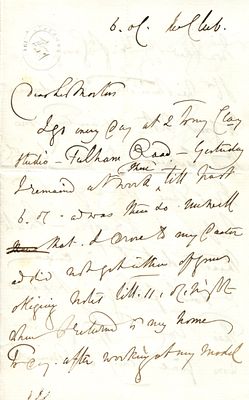 6. oC. The Club.
Dear L. Morton
I go every day at 2 to my Clay
Studio - Fulham Road - Yesterday
I remained at work there till past
6. oC - 
that. I drove to my Caster
ad did not get either of your
obliging notes till. 11. oC. night
when I returned to my home
To Day. after working at my model